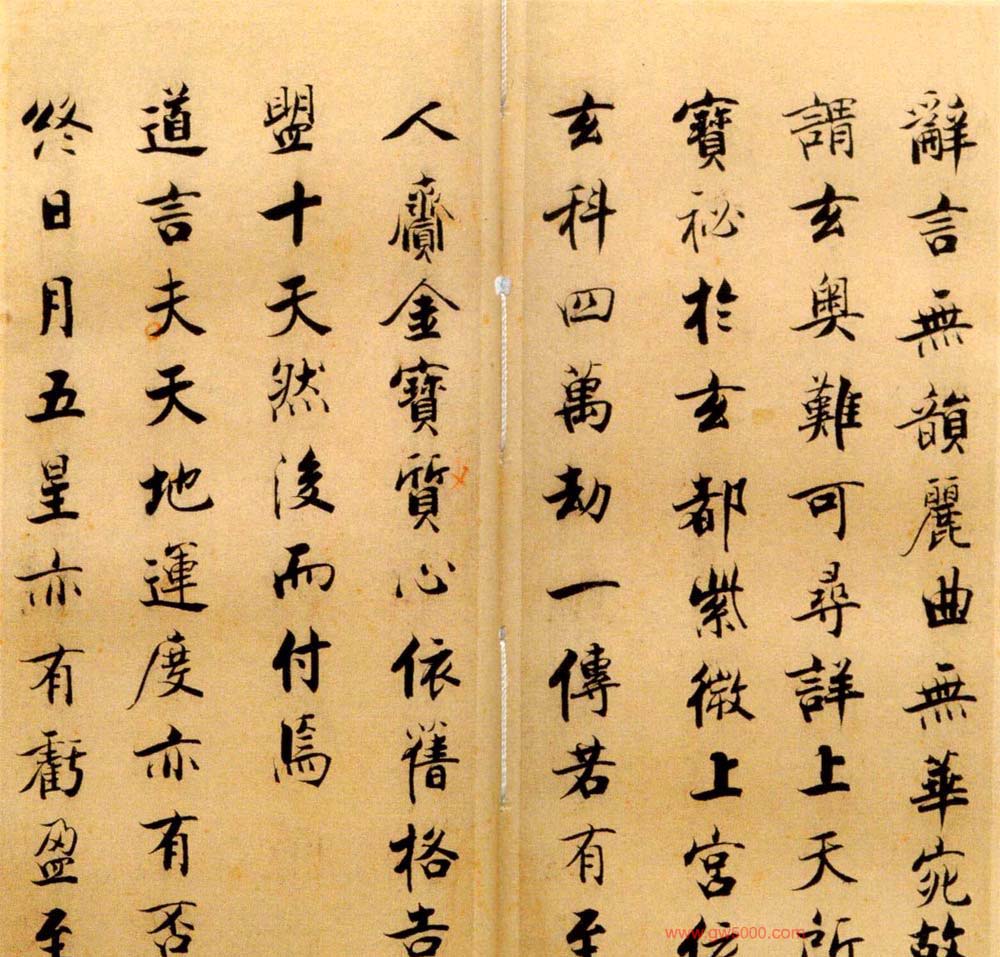 辭言無韻麗曲無華宛故
謂玄奧難可尋詳上天所
寶祕於玄都紫微上宮依
玄科四萬劫一傳若有至
人齎金寶質心依舊格告
盟十天然後而付焉
道言夫天地運度亦有否
終日月五星亦有虧盈至
www.gw5000.com